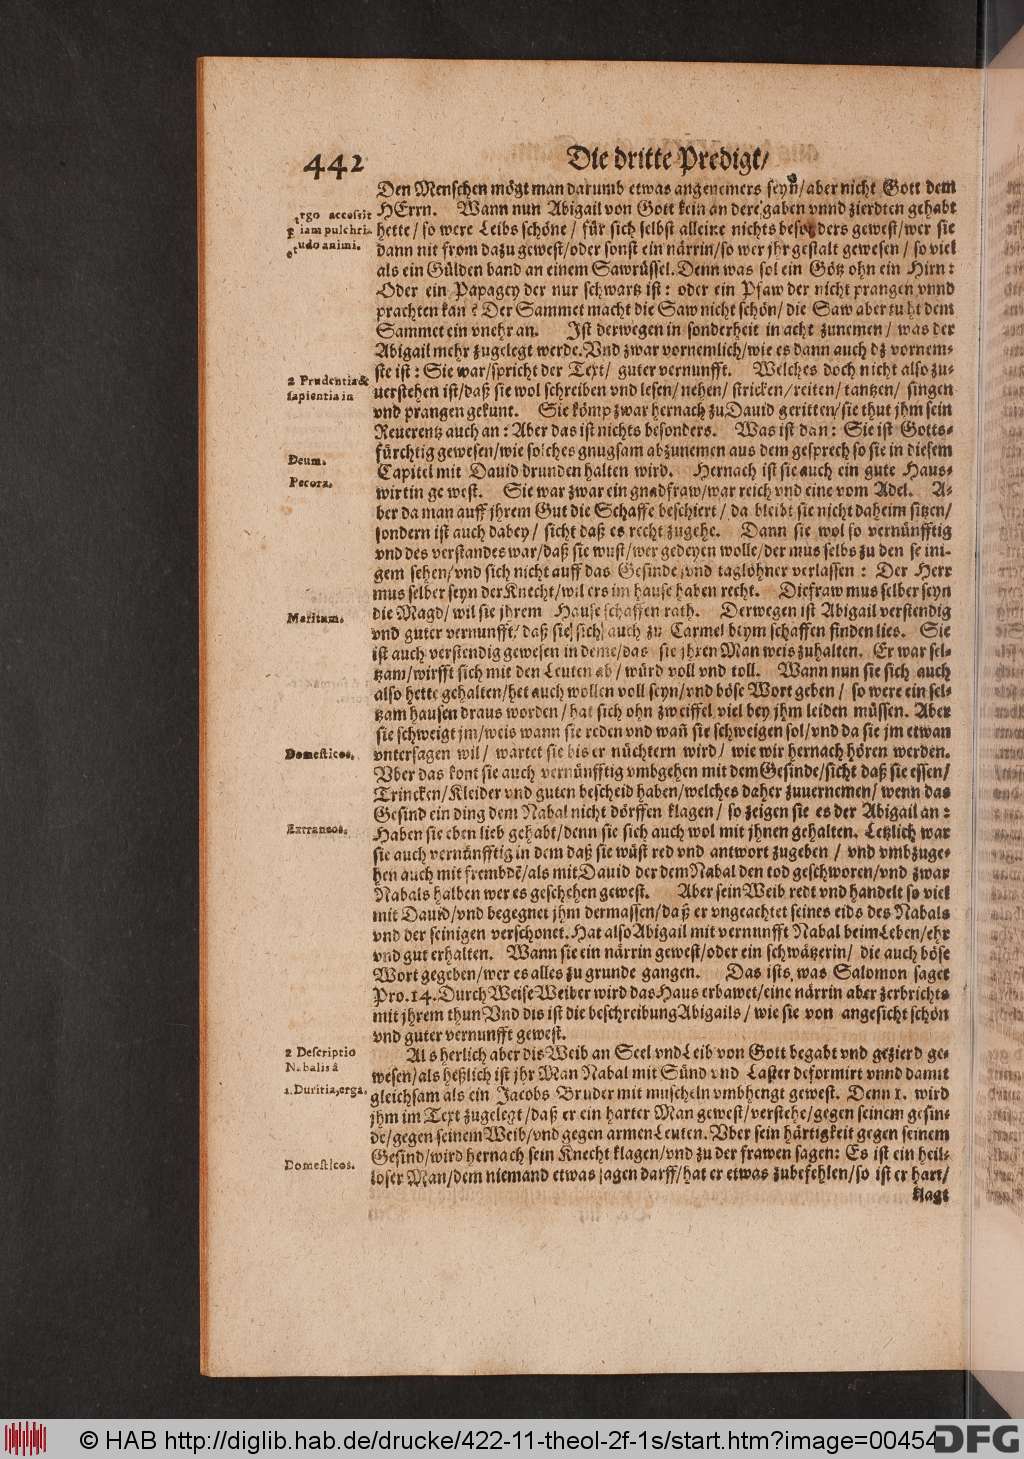 442
Die dritte Predigt/
Den Menschen mögt man darumb etwas angenemers seyn/aber nicht Gott dem
HErrn. Wann nun Abigail von Gott kein andere gaben vnnd zierdten gehabt
hette/so were Leibs schöne/für sich selbst alleine nichts besonders gewest/wer sie
dann nit from dazu gewest/oder sonst ein närrin/so wer jhr gestalt gewesen/so viel
als ein Gülden band an einem Sawrüssel. Denn was sol ein Götz ohn ein Hirn:
Oder ein Papagey der nur schwartz ist: oder ein Pfaw der nicht prangen vnnd
prachten kan? Der Sammet macht die Saw nicht schön/die Saw aber tuht dem
Sammet ein vnehr an. Ist derwegen in sonderheit in acht zunemen/was der
Abigail mehr zugelegt werde. Vnd zwar vornemlich/wie es dann auch dz vornem-
ste ist: Sie war/spricht der Text/guter vernunfft. Welches doch nicht also zu-
uerstehen ist/daß sie wol schreiben vnd lesen/nehen/stricken/reiten/tantzen/singen
vnd prangen gekunt. Sie kömp zwar hernach zu Dauid geritten/sie thut jhm sein
Reuerentz auch an: Aber das ist nichts besonders. Was ist dan: Sie ist Gotts-
fürchtig gewesen/wie solches gnugsam abzunemen aus dem gesprech so sie in diesem
Capitel mit Dauid drunden halten wird. Hernach ist sie auch ein gute Haus-
wirtin gewest. Sie war zwar ein gnadfraw/war reich vnd eine vom Adel. A-
ber da man auff jhrem Gut die Schaffe beschiert/da bleibt sie nicht daheim sitzen/
sondern ist auch dabey/sicht daß es recht zugehe. Dann sie wol so vernünfftig
vnd des verstandes war/daß sie wust/wer gedeyen wolle/der mus selbs zu den seini-
gem sehen/vnd sich nicht auff das Gesinde vnd taglöhner verlassen: Der Herr
mus selber seyn der Knecht/wil ers im hause haben recht. Die fraw mus selber seyn
die Magd/wil sie jhrem Hause schaffen rath. Derwegen ist Abigail verstendig
vnd guter vernunfft/daß sie sich auch zu Carmel beym schaffen finden lies. Sie
ist auch verstendig gewesen in deme/das sie jhren Man weis zuhalten. Er war sel-
tzam/wirfft sich mit den Leuten ab/würd voll vnd toll. Wann nun sie sich auch
also hette gehalten/het auch wollen voll seyn/vnd böse Wort geben/so were ein sel-
tzam hausen draus worden/hat sich ohn zweiffel viel bey jhm leiden müssen. Aber
sie schweigt jm/weis wann sie reden vnd wañ sie schweigen sol/vnd da sie jm etwan
vntersagen wil/wartet sie bis er nüchtern wird/wie wir hernach hören werden.
Vber das kont sie auch vernünfftig vmbgehen mit dem Gesinde/sicht daß sie essen/
Trincken/Kleider vnd guten bescheid haben/welches daher zuuernemen/wenn das
Gesind ein ding dem Nabal nicht dörffen klagen/so zeigen sie es der Abigail an:
Haben sie eben lieb gehabt/denn sie sich auch wol mit jhnen gehalten. Letzlich war
sie auch vernünfftig in dem daß sie wüst red vnd antwort zugeben/vnd vmbzuge-
hen auch mit frembdẽ/als mit Dauid der dem Nabal den tod geschworen/vnd zwar
Nabals halben wer es geschehen gewest. Aber sein Weib redt vnd handelt so viel
mit Dauid/vnd begegnet jhm dermassen/daß er vngeachtet seines eids des Nabals
vnd der seinigen verschonet. Hat also Abigail mit vernunfft Nabal beim Leben/ehr
vnd gut erhalten. Wann sie ein närrin gewest/oder ein schwätzerin/die auch böse
Wort gegeben/wer es alles zu grunde gangen. Das ists, was Salomon saget
Pro. 14. Durch Weise Weiber wird das Haus erbawet/eine närrin aber zerbrichts
mit jhrem thun Vnd dis ist die beschreibung Abigails/wie sie von angesicht schön
vnd guter vernunfft gewest.
Als herlich aber dis Weib an Seel vnd Leib von Gott begabt vnd gezierd ge-
wesen/als heßlich ist jhr Man Nabal mit Sünd vnd Laster deformirt vnnd damit
gleichsam als ein Jacobs Bruder mit muscheln vmbhengt gewest. Denn 1. wird
jhm im Text zugelegt/daß er ein harter Man gewest/verstehe/gegen seinem gesin-
de/gegen seinem Weib/vnd gegen armen Leuten. Vber sein härtigkeit gegen seinem
Gesind/wird hernach sein Knecht klagen/vnd zu der frawen sagen: Es ist ein heil-
loser Man/dem niemand etwas sagen darff/hat er etwas zubefehlen/so ist er hart/
klagt
rgo accessit
iam pulchri-
tudo animi.
2 Prudentia &
sapientia in
Deum.
Pecora.
Maritum.
Domesticos.
Extraneos.
2 Descriptio
Nabalis â
1. Duritia, erga.
Domesticos.
© HAB http://diglib.hab.de/drucke/422-11-theol-2f-1s/start.htm?image=00454
DFG